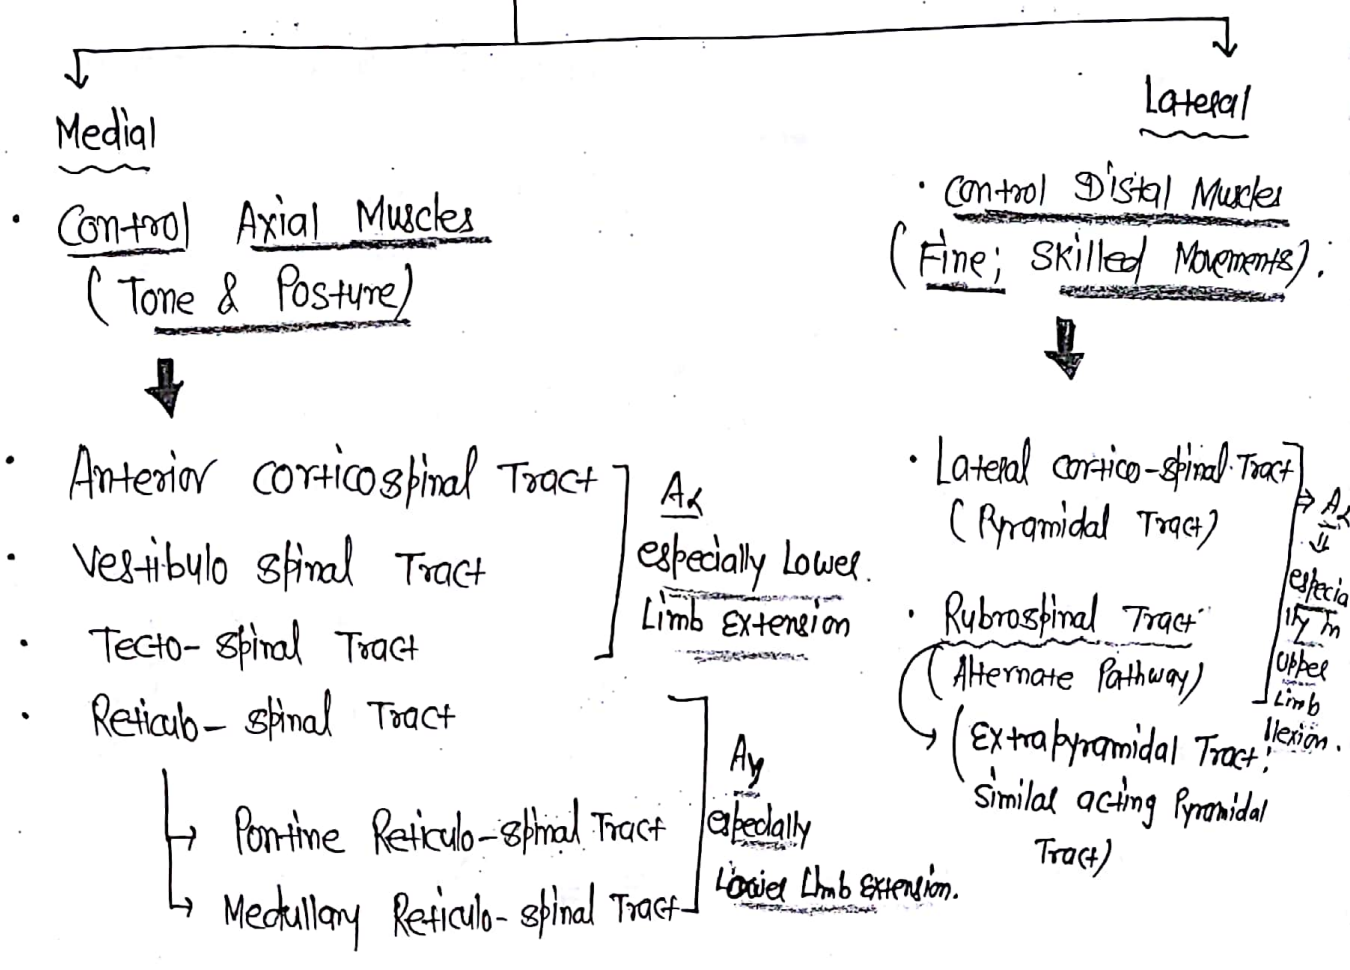 Medial
• Control Axial Muscles
(Tone & Posture)
• Anterior corticospinal Tract
• Vestibulo spinal Tract
• Tecto-spinal Tract
Aα
especially Lower.
Limb Extension
• Reticulo-spinal Tract
→ Pontine Reticulo-spinal Tract
→ Medullary Reticulo-spinal Tract
Aγ
especially
Lower Limb Extension.
Lateral
• Control Distal Muscles
(Fine; Skilled Movements).
• Lateral cortico-spinal Tract
(Pyramidal Tract)
• Rubrospinal Tract
(Alternate Pathway)
(Extrapyramidal Tract;
Similar acting Pyramidal
Tract)
⇒ Aα
⇓
especia
lly In
Upper
Limb
flexion.